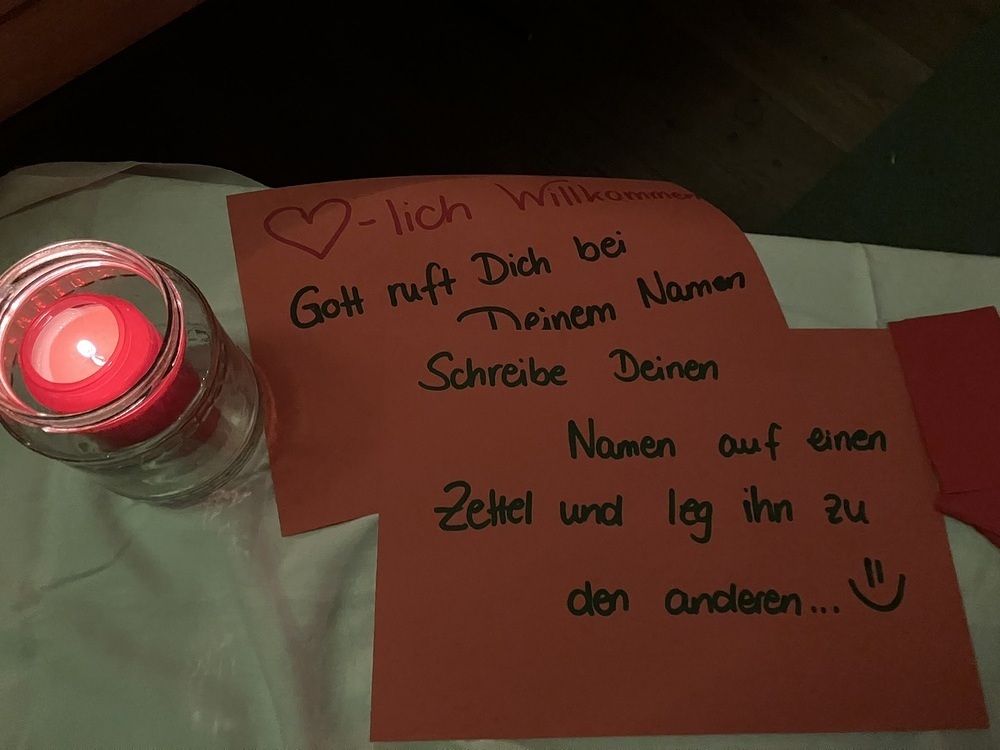 ♡-lich Willkommen
Gott ruft Dich bei
Deinem Namen
Schreibe Deinen
Namen auf einen
Zettel und leg ihn zu
den anderen...